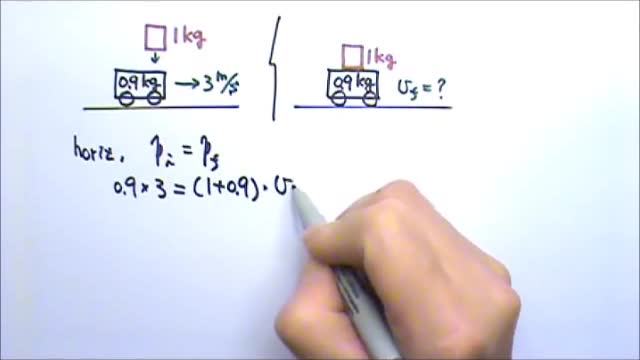 1kg
0.9kg → 3 m/s
1kg
0.9kg v_f = ?
horiz. p_i = p_f
0.9 × 3 = (1+0.9) · v